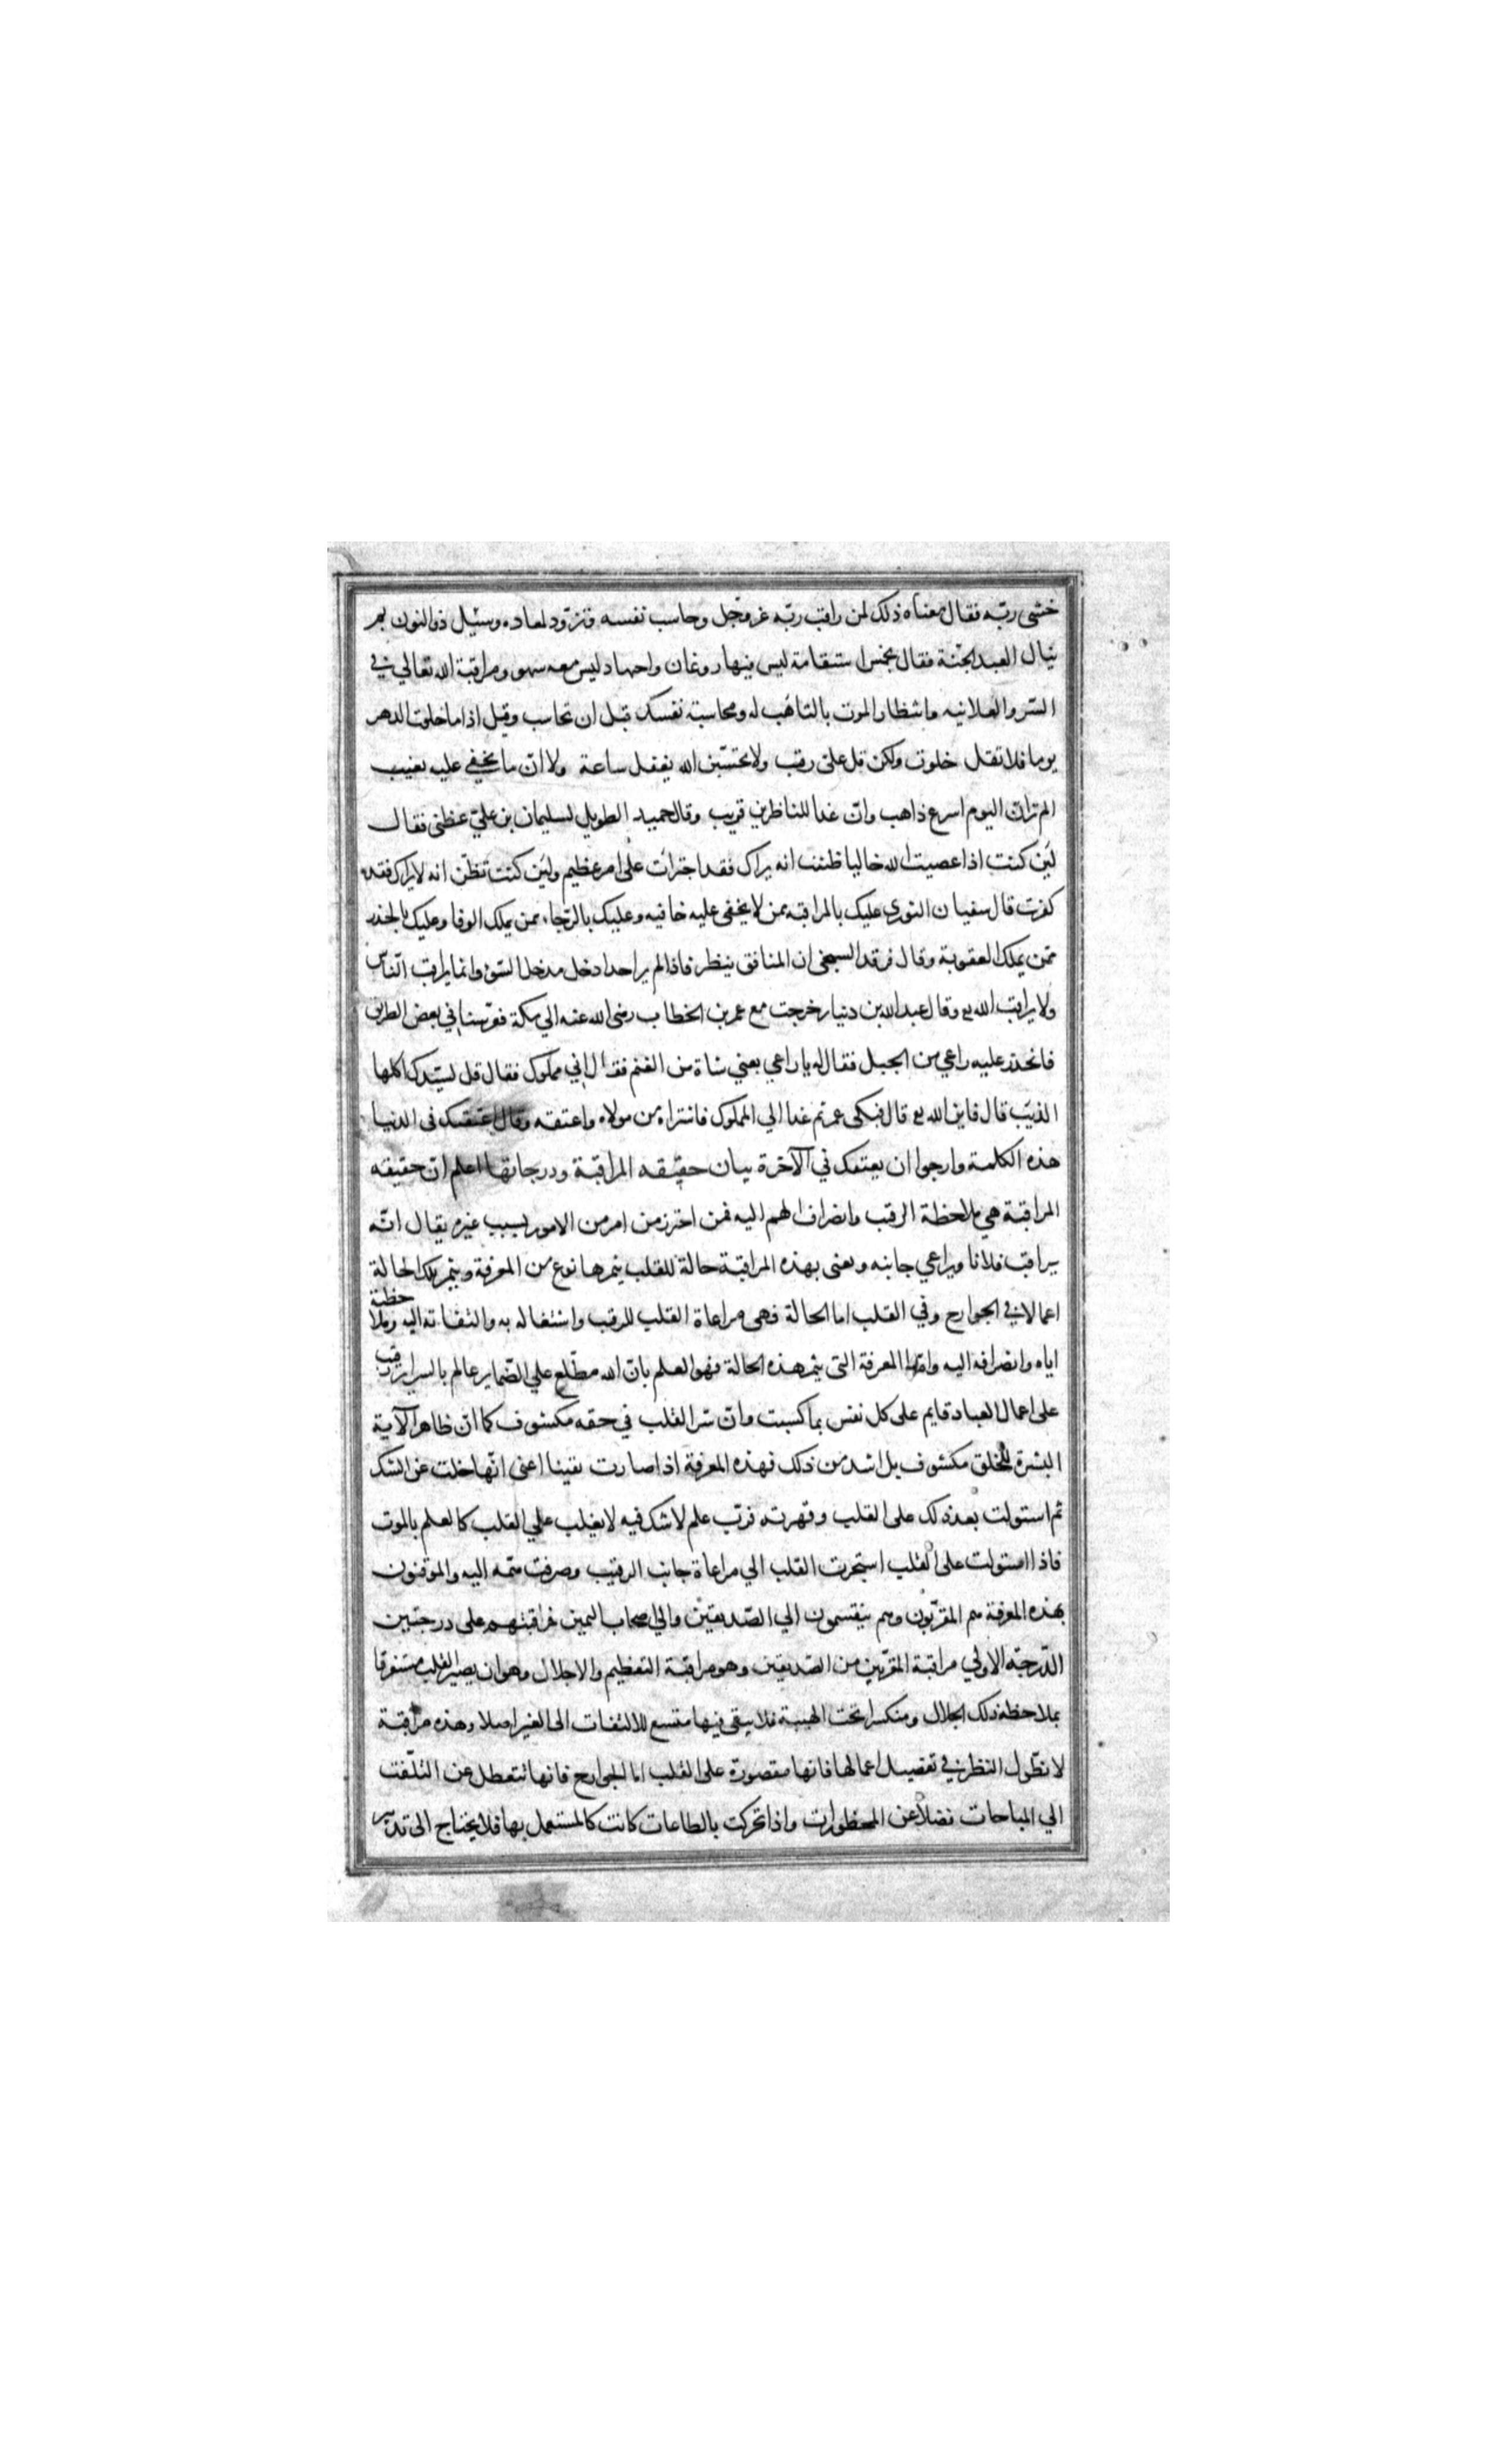 خشى ربّه فقال معناه ذلك لمن راقب ربّه عزوجل وحاسب نفسه وتزوّد لمعاده وسئيل ذوالنون بم
ينال العبد الجنّة فقال بخمس استقامة ليس فيها روغان واجهاد ليس معه سهو ومراقبة الله تعالي في
السّر والعلانيه وانتظار الموت بالتاهّب له ومحاسبة نفسك قبل ان تحاسب وقيل اذا ما خلوت الدهر
يوما فلا تقل خلوت ولكن قل علىّ رقيب ولا تحسّبن الله يغفل ساعة ولا انّ ما يخفي عليه يغيب
الم تران اليوم اسرع ذاهب وانّ غدا للناظرين قريب وقال حميد الطويل لسليمان بن عليّ عظنى فقال
لئن كنت اذا عصيت الله خاليا ظننت انه يراك فقد اجترات على امر عظيم ولئن كنت تظنّ انه لا يراك فقد
كفرت قال سفيان الثوري عليك بالمراقبه بمن لا يخفى عليه خافيه وعليك بالرّجاء ممن يملك الوفا وعليك بالحذر
ممّن يملك العقوبة وقال فرقد السبخى ان المنافق ينظر فاذا لم ير احدا دخل مدخل السّوء وانما يراقب النّاس
ولا يراقب الله تع وقال عبد الله بن دينار خرجت مع عمر بن الخطاب رضى الله عنه الي مكة فعرّسنا في بعض الطريق
فانحدر عليه راعي من الجبل فقال له يا راعي بعني شاة من الغنم فقال اني مملوك فقال قل لسيّدك اكلها
الذيب قال فاين الله تع قال فبكى عمر ثم غدا الي المملوك فاشتراه من مولاه واعتقه وقال اعتقتك في الدنيا
هذه الكلمة وارجوا ان يعتقك في الآخرة بيان حقيقه المراقبة ودرجاتها اعلم انّ حقيقه
المراقبة هي ملاحظة الرقيب وانصراف الهم اليه فمن احترز من امر من الامور بسبب غيره يقال انّه
يراقب فلانا ويراعي جانبه ويعنى بهذه المراقبة حالة للقلب يثمرها نوع من المعرفة ويثمر تلك الحالة
اعمالا في الجوارح وفي القلب اما الحالة فهى مراعاة القلب للرقيب واشتغاله به والتفاته اليه وملاحظة
اياه وانصرافه اليه وامّا المعرفة التى يثمر هذه الحالة فهو العلم بانّ الله مطّلع علي الضّماير عالم بالسراير رقيب
على اعمال العباد قايم على كل نفس بما كسبت وانّ سّر القلب في حقه مكشوف كما انّ ظاهر الآية
البشرة للخلق مكشوف بل اشد من ذلك فهذه المعرفة اذا صارت يقينا اعنى انّها خلت عن الشك
ثم استولت بعد ذلك على القلب وقهرته فربّ علم لا شك فيه لا يغلب علي القلب كالعلم بالموت
فاذا استولت على القلب استجرت القلب الي مراعاة جانب الرقيب وصرفت همّه اليه والموقنون
بهذه المعرفة هم المقرّبون وهم ينقسمون الي الصّديقين والي اصحاب اليمين فمراقبتهم على درجتين
الدّرجّة الاولي مراقبة المقرّبين من الصّديقين وهو مراقبة التعظيم والاجلال وهو ان يصير القلب مستغرقا
بملاحظة ذلك الجلال ومنكسرا تحت الهيبة فلا يبقى فيها متسع للالتفات الى الغير اصلا وهذه مراقبة
لا نطّول النظر في تفصيل اعمالها فانها مقصورة على القلب اما الجوارح فانها تتعطل عن التلّفت
الي المباحات فضلاً عن المحظورات واذا تحركت بالطاعات كانت كالمستعمل بها فلا يحتاج الى تدبير